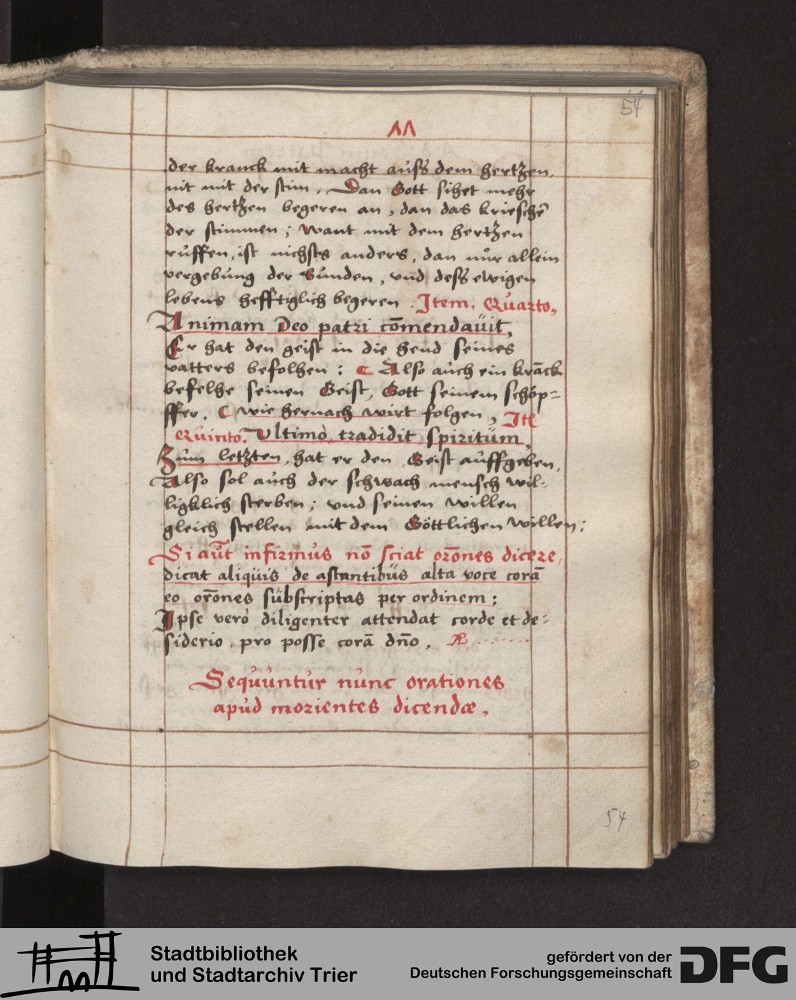 54
ΛΛ
der kranck mit macht aúſs dem hertzen
nit mit der stim, Dan Gott sihet mehr
des hertzen begeren an, dan das krieschē
der stimmen; want mit dem hertzen
rúffen, ist nichsts anders, dan núr allein
vergebúng der Súnden, vnd deſs ewigen
lebens hefftiglich begeren. Item, Qúarto,
Animam Deo patri cōmendaúit,
Er hat den geist in die hend seines
vatters befolhen: C Also aúch ein krāck
befelhe seinen Geist, Gott seinem schöp=
ffer. C wie hernach wirt folgen, Itē
Qúinto. Vltimò tradidit spiritúm,
Zúm letzten, hat er den Geist aúffgeben,
Also sol aúch der schwach mensch wil-
ligklich sterben; vnd seinen willen
gleich stellen mit dem Göttlichen willen;
Si aút infirmús nō sciat orōnes dicere,
dicat aliqúis de astantibús alta voce corā
eo orōnes súbscriptas per ordinem;
Ipse verò diligenter attendat corde et de=
siderio, pro posse corā dño,
Seqúúntúr núnc orationes
apúd morientes dicendæ,
54
Stadtbibliothek
und Stadtarchiv Trier
gefördert von der
Deutschen Forschungsgemeinschaft
DFG